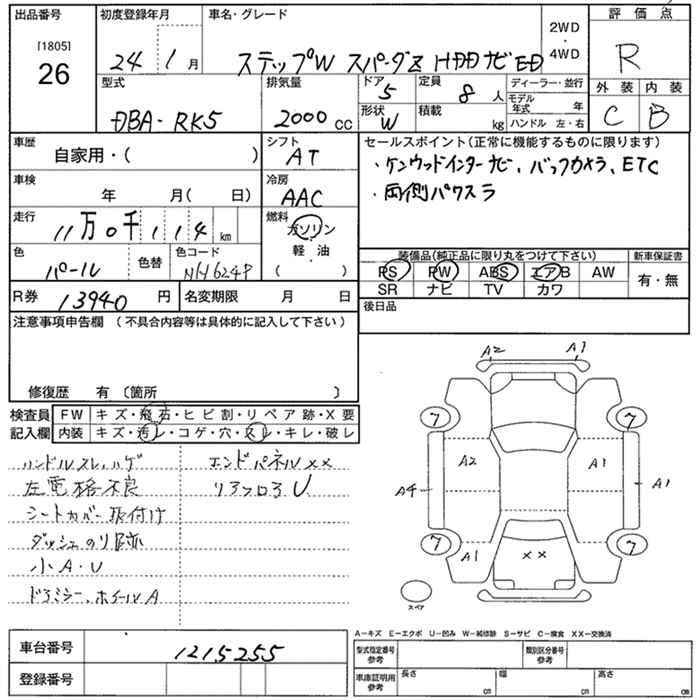 出品番号 初度登録年月 車名・グレード 2WD・4WD 評価点
[1805]
26
24年1月 ステップW スパーダZ HDDナビED R
型式 排気量 ドア 定員 ディーラー・並行 外装 内装
DBA-RK5 2000cc 5 8人 モデル年式 年 C B
形状 W 積載 kg ハンドル 左・右
車歴 自家用・( ) シフト AT
セールスポイント(正常に機能するものに限ります)
・ケンウッドインターナビ、バックカメラ、ETC
・両側パワスラ
車検 年 月( 日) 冷房 AAC
走行 11万0千114km 燃料 ガソリン・軽油( )
色 パール 色替 色コード NH624P
装備品(純正品に限り丸をつけて下さい) 新車保証書
PS PW ABS エアB AW 有・無
SR ナビ TV カワ
R券 13940円 名変期限 月 日 後日品
注意事項申告欄(不具合内容等は具体的に記入して下さい)
修復歴 有〔箇所 〕
検査員記入欄 FW キズ・飛石・ヒビ割・リペア跡・X要
内装 キズ・汚レ・コゲ・穴・スレ・キレ・破レ
ハンドルスレ、ハゲ エンドパネルXX
左電格不良 リアフロアU
シートカバー取付け
ダッシュのり跡
小A・U
ドアミラー、ホイールA
A2 A1
7 7
A2 A1
A4 A1
7 7
A1 XX
スペア
A−キズ E−エクボ U−凹み W−補修跡 S−サビ C−腐食 XX−交換済
車台番号 1215255
登録番号
型式指定番号 参考 類別区分番号 参考
車庫証明用 参考 長さ cm 幅 cm 高さ cm